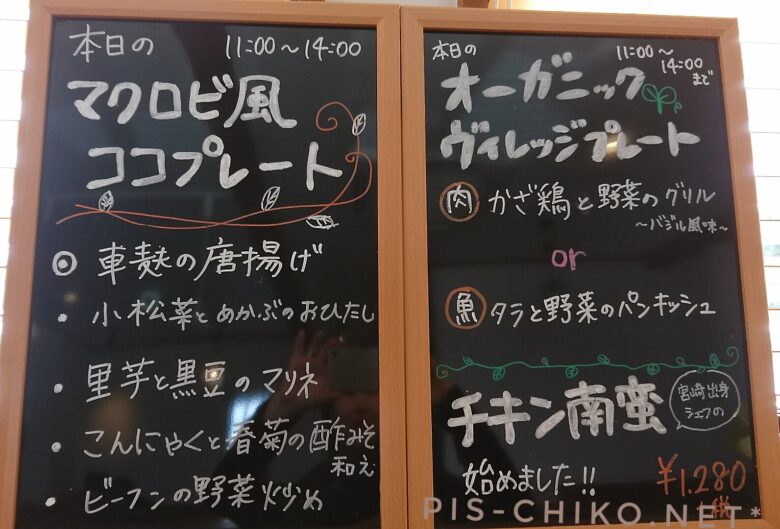 本日の 11:00〜14:00
マクロビ風
ココプレート
◎ 車麩の唐揚げ
・小松菜とめかぶのおひたし
・里芋と黒豆のマリネ
・こんにゃくと春菊の酢みそ
和え
・ビーフンの野菜炒め
本日の 11:00〜
14:00
まで
オーガニック
ヴィレッジプレート
肉 かざ鶏と野菜のグリル
〜バジル風味〜
or
魚 タラと野菜のパンキッシュ
宮崎出身
シェフの
チキン南蛮
始めました!! ¥1.280
税
PIS-CHIKO.NET*